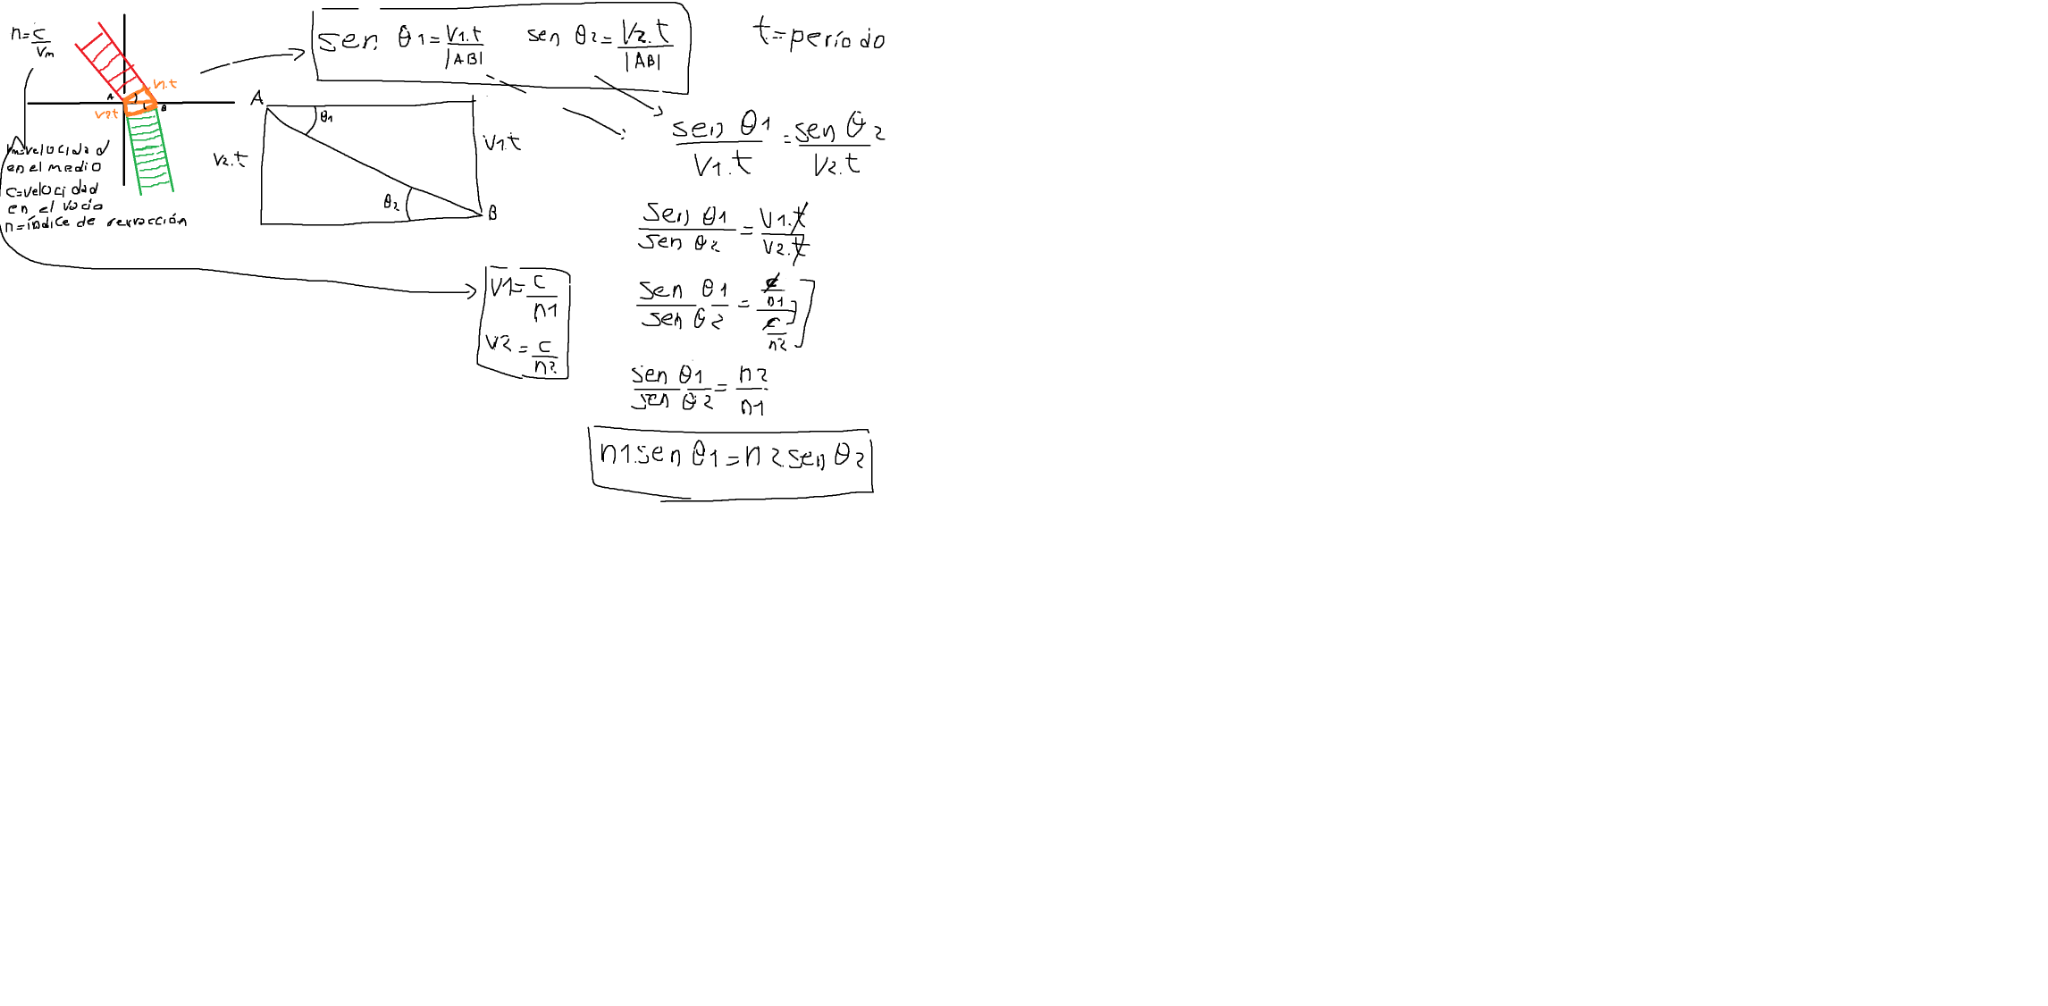 n=c/vm
v1.t
A
B
v2t
vm=velocidad
en el medio
c=velocidad
en el vacío
n=índice de refracción
sen θ1=v1.t/|AB| sen θ2=v2.t/|AB|
t=período
A
θ1
v1.t
v2.t
θ2
B
sen θ1/v1.t=sen θ2/v2.t
sen θ1/sen θ2=v1.t/v2.t
v1=c/n1
v2=c/n2
sen θ1/sen θ2=c/n1/c/n2
sen θ1/sen θ2=n2/n1
n1.sen θ1=n2.sen θ2